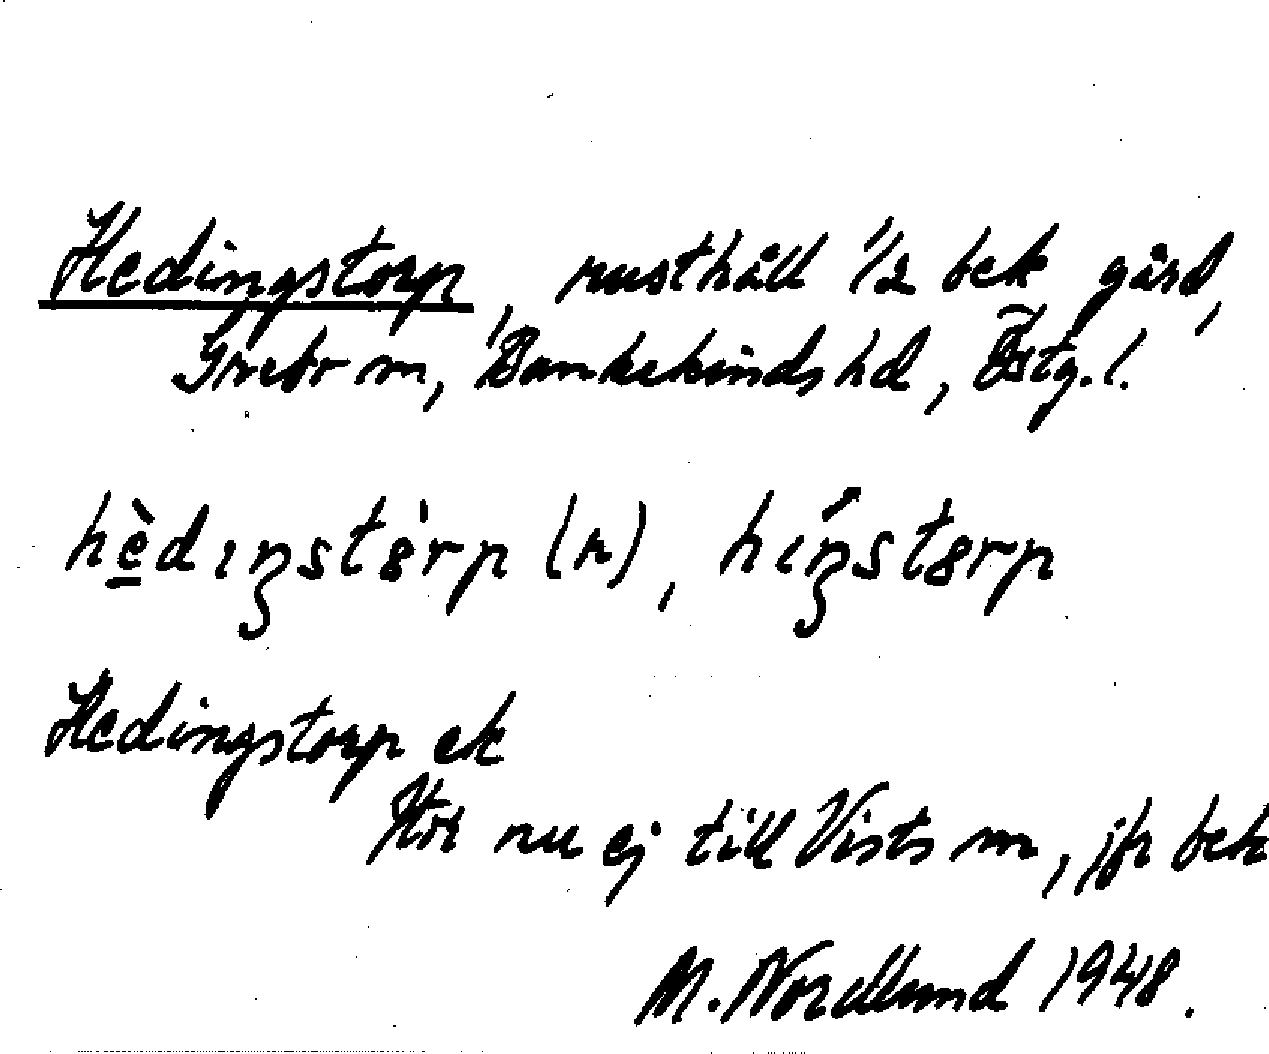 Hedingstorp, rusthåll 1/2 bek gård,
Grebo sn, Bankekinds hd, Östg. l.
hèdıŋstȣ̀rp (n), híŋstȣrp
Hedingstorp ek
Hör nu ej till Vists sn, jfr bek
M. Nordlund 1948.